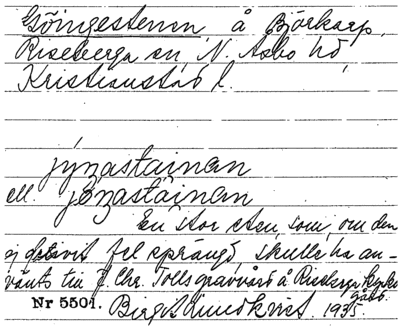 Göingestenen å Björkarp,
Riseberga sn, N. Åsbo hd,
Kristianstad l.
jyn̥astainan
ell. jön̥astainan
En stor sten, som, om den
ej blivit fel sprängd, skulle ha an-
vänts till J. Chr. Tolls gravvård å Riseberga kyrko
gård.
Nr 5501. Birgit Lundkvist. 1935.